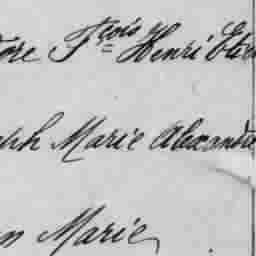 ore Fçois Henri Etie
eph Marie Alexandre
n Marie